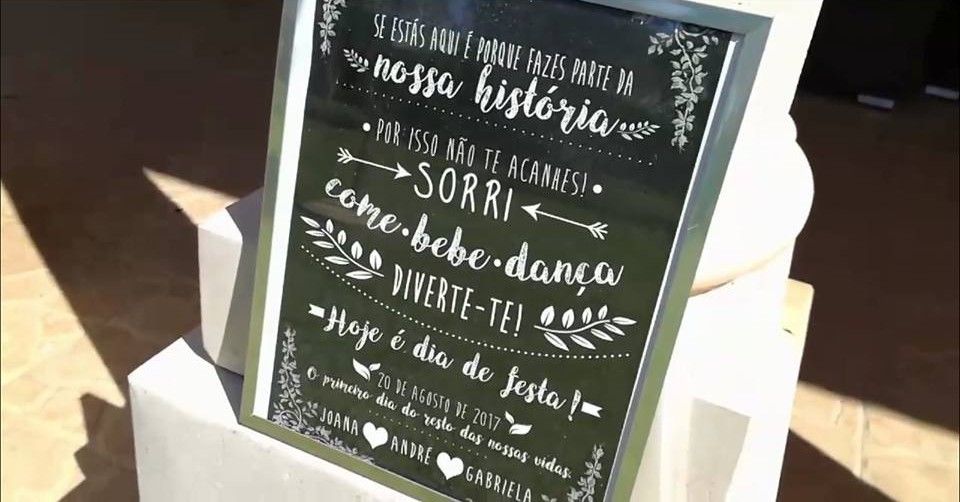 SE ESTÁS AQUI É PORQUE FAZES PARTE DA
nossa história
• POR ISSO NÃO TE ACANHES! •
SORRI
come • bebe • dança
DIVERTE-TE!
Hoje é dia de festa!
20 DE AGOSTO DE 2017
O primeiro dia do resto das nossas vidas.
JOANA ♥ ANDRÉ ♥ GABRIELA